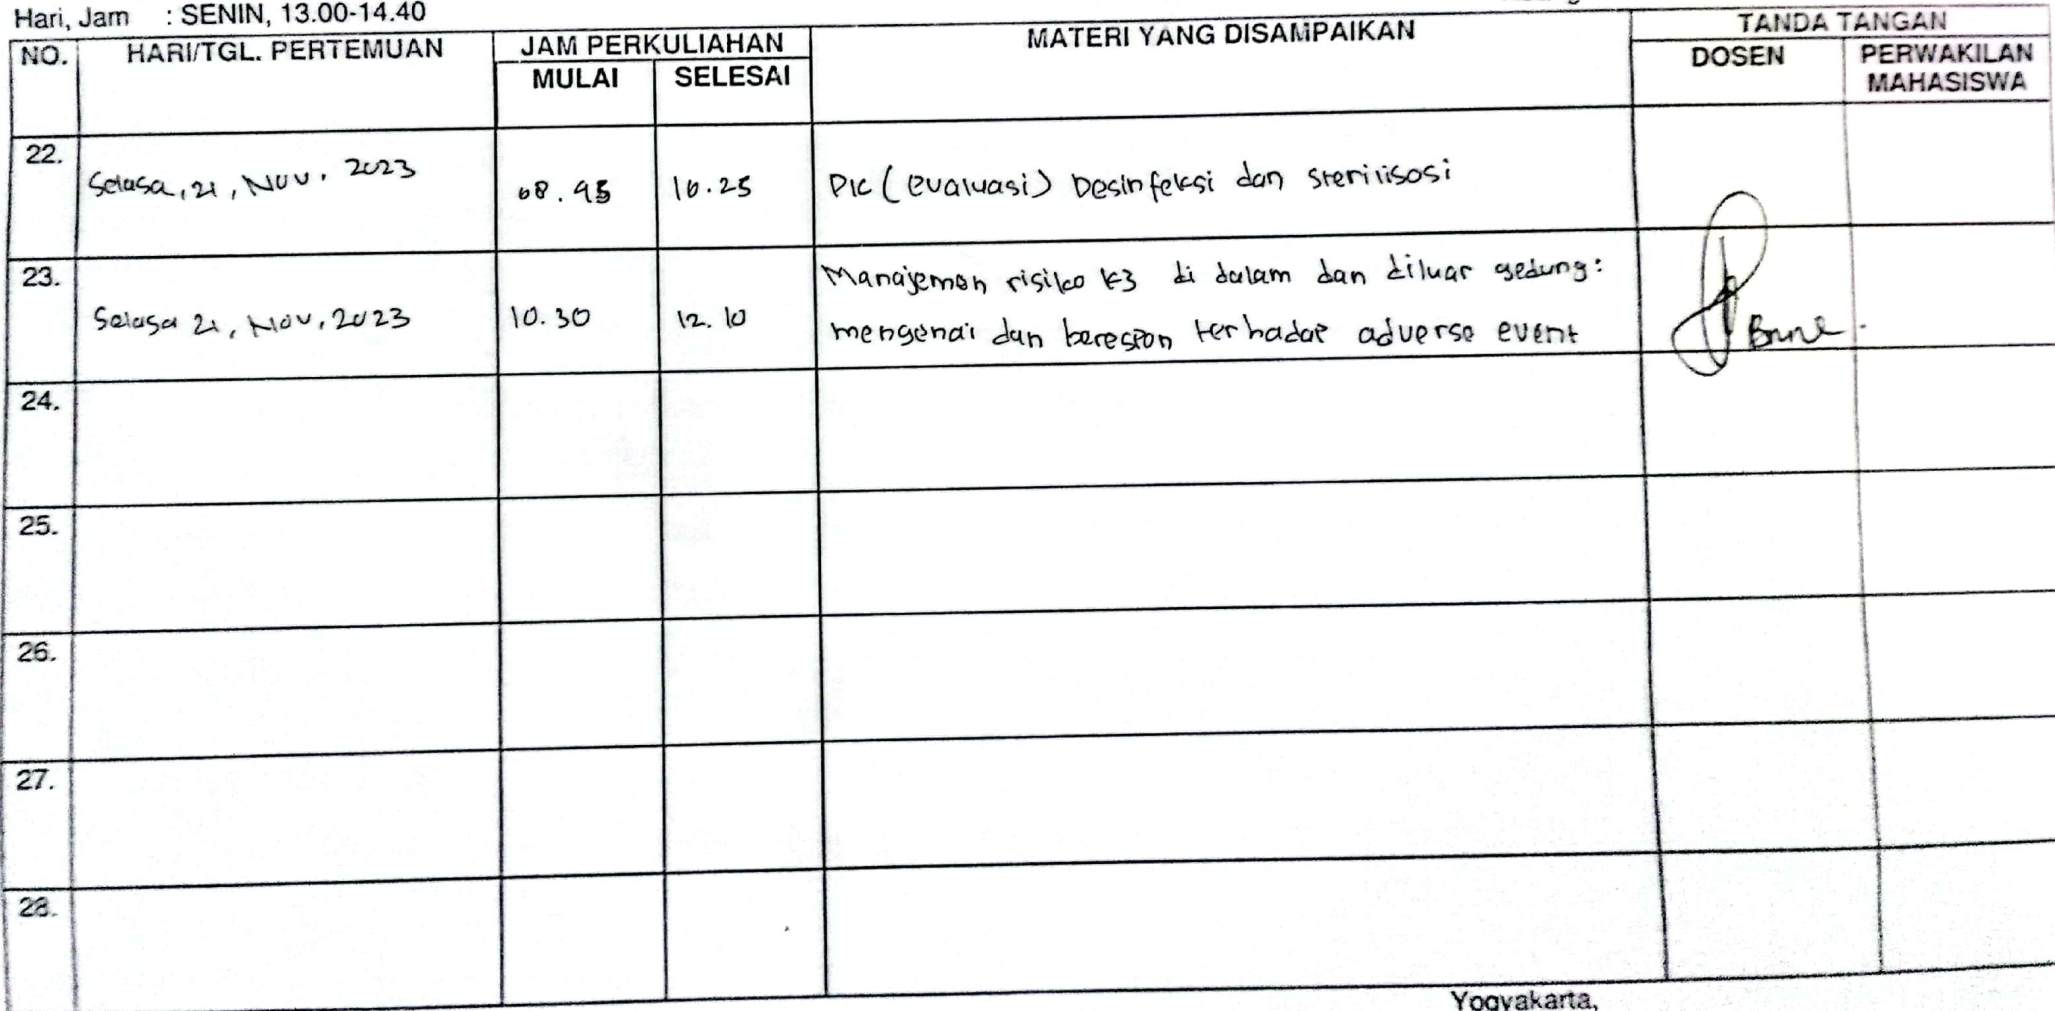 Hari, Jam : SENIN, 13.00-14.40
NO. HARI/TGL. PERTEMUAN JAM PERKULIAHAN MATERI YANG DISAMPAIKAN TANDA TANGAN
MULAI SELESAI DOSEN PERWAKILAN MAHASISWA
22. Selasa, 21, Nov. 2023 08.45 10.25 PIC (evaluasi) Desinfeksi dan sterilisosi
23. Selasa 21, Nov, 2023 10.30 12.10 Manajemen risiko K3 di dalam dan diluar gedung:
mengenai dan berespon terhadap adverse event
24.
25.
26.
27.
28.
Yogyakarta,